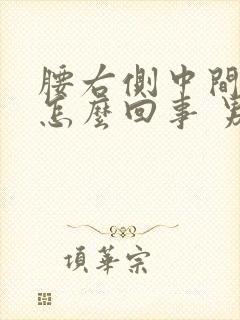 腰右側中間
怎麼回事
項華宗